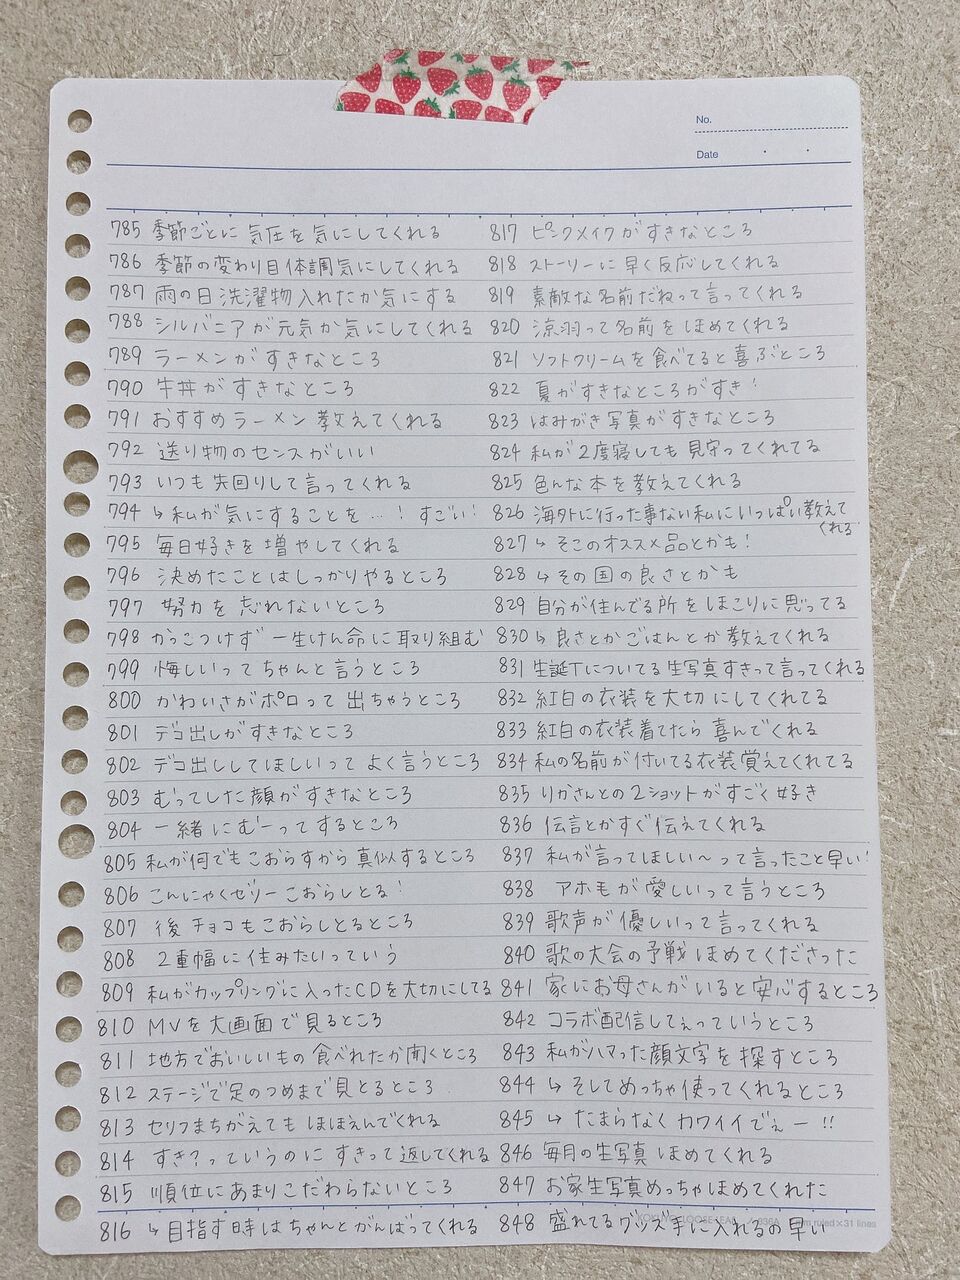 No.
Date
785 季節ごとに気圧を気にしてくれる
786 季節の変わり目体調気にしてくれる
787 雨の日洗濯物入れたか気にする
788 シルバニアが元気か気にしてくれる
789 ラーメンがすきなところ
790 牛丼がすきなところ
791 おすすめラーメン教えてくれる
792 送り物のセンスがいい
793 いつも先回りして言ってくれる
794 ↳私が気にすることを…!すごい!
795 毎日好きを増やしてくれる
796 決めたことはしっかりやるところ
797 努力を忘れないところ
798 かっこつけず一生けん命に取り組む
799 悔しいってちゃんと言うところ
800 かわいさがポロって出ちゃうところ
801 デコ出しがすきなところ
802 デコ出ししてほしいってよく言うところ
803 むってした顔がすきなところ
804 一緒にむーってするところ
805 私が何でもこおらすから真似するところ
806 こんにゃくゼリーこおらしとる!
807 後チョコもこおらしとるところ
808 2重幅に住みたいっていう
809 私がカップリングに入ったCDを大切にしてる
810 MVを大画面で見るところ
811 地方でおいしいもの食べれたか聞くところ
812 ステージで足のつめまで見とるところ
813 セリフまちがえてもほほえんでくれる
814 すき?っていうのにすきって返してくれる
815 順位にあまりこだわらないところ
816 ↳目指す時はちゃんとがんばってくれる
817 ピンクメイクがすきなところ
818 ストーリーに早く反応してくれる
819 素敵な名前だねって言ってくれる
820 涼羽って名前をほめてくれる
821 ソフトクリームを食べてると喜ぶところ
822 夏がすきなところがすき!
823 はみがき写真がすきなところ
824 私が2度寝しても見守ってくれてる
825 色んな本を教えてくれる
826 海外に行った事ない私にいっぱい教えて
くれる
827 ↳そこのオススメ品とかも!
828 ↳その国の良さとかも
829 自分が住んでる所をほこりに思ってる
830 ↳良さとかごはんとか教えてくれる
831 生誕Tについてる生写真すきって言ってくれる
832 紅白の衣装を大切にしてくれてる
833 紅白の衣装着てたら喜んでくれる
834 私の名前が付いてる衣装覚えてくれてる
835 りかさんとの2ショットがすごく好き
836 伝言とかすぐ伝えてくれる
837 私が言ってほしい〜って言ったこと早い!
838 アホ毛が愛しいって言うところ
839 歌声が優しいって言ってくれる
840 歌の大会の予戦ほめてくださった
841 家にお母さんがいると安心するところ
842 コラボ配信してぇっていうところ
843 私がハマった顔文字を探すところ
844 ↳そしてめっちゃ使ってくれるところ
845 ↳たまらなくカワイイでぇー!!
846 毎月の生写真ほめてくれる
847 お家生写真めっちゃほめてくれた
848 盛れてるグッズ手に入れるの早い